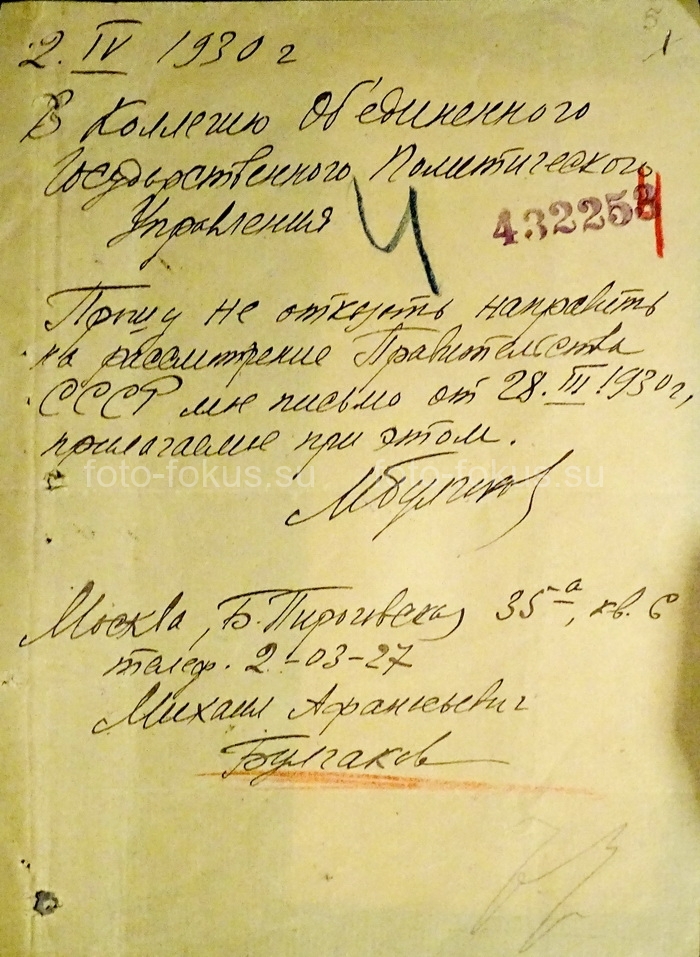 5
1
2. IV 1930 г
В Коллегию Об'единенного
Государственного Политического
Управления
4 432253
Прошу не отказать направить
на рассмотрение Правительства
СССР мое письмо от 28. III. 1930 г,
прилагаемое при этом.
foto-fokus.su foto-fokus.su
МБулгаков
Москва, Б. Пироговская 35а, кв. 6
телеф. 2-03-27
Михаил Афанасьевич
Булгаков